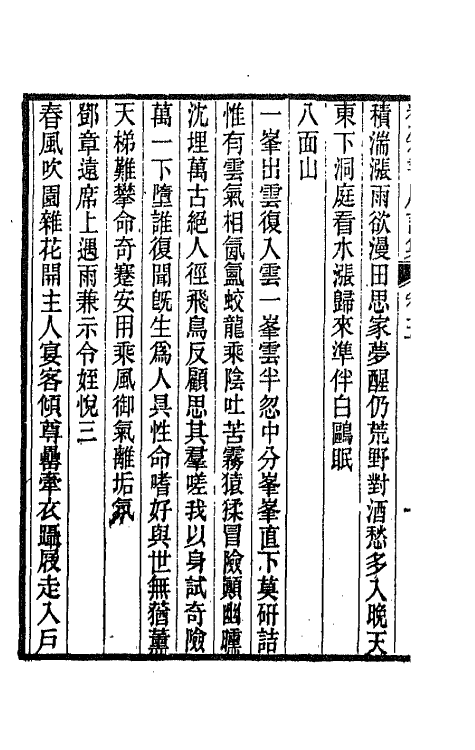 積湍漲雨欲漫田思家夢醒仍荒野對酒愁多入晚天
東下洞庭看水漲歸來準伴白鷗眠
八面山
一峯出雲復入雲一峯雲半忽中分峯峯直下莫研詰
惟有雲氣相氤氳蛟龍乘陰吐苦霧猿猱冒險顚幽曛
沈埋萬古絕人徑飛鳥反顧思其羣嗟我以身試奇險
萬一下墮誰復聞旣生爲人具性命嗜好與世無猶薰
天梯難攀命奇蹇安用乘風御氣離垢氛
鄧章遠席上遇雨兼示令姪悅三
春風吹園雜花開主人宴客傾尊罍牽衣躡屐走入戶